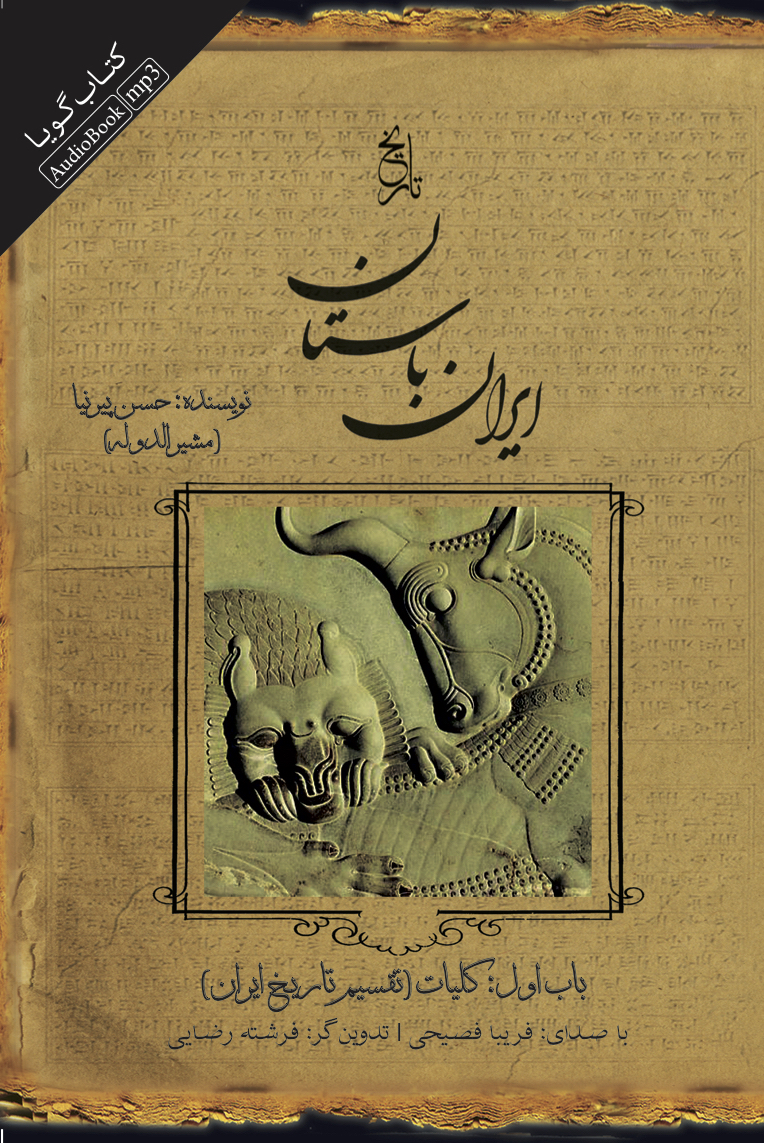 کتاب گویا
AudioBook mp3
تاریخ
ایران باستان
نویسنده: حسن پیرنیا
(مشیرالدوله)
باب اول: کلیات (تقسیم تاریخ ایران)
با صدای: فریبا فصیحی | تدوین‌گر: فرشته رضایی